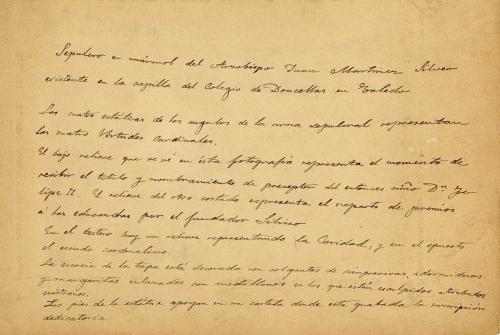 Sepulcro en mármol del Arzobispo Juan Martinez Siliceo
existente en la capilla del Colegio de Doncellas en Toledo
Las cuatro estátuas de los angulos de la urna sepulcral representan
las cuatro Virtudes Cardinales.
El bajo relieve que se vé en esta fotografia representa el momento de
recibir el titulo y nombramiento de preceptor del entonces niño Dn. Fe-
lipe II. El relieve del otro costado representa el reparto de premios
á las educandas por el fundador Siliceo
En el testero hay un relieve representando la Caridad, y en el opuesto
el escudo cardenalicio.
La escocia de la tapa está decorada con colgantes de siemprevivas, adormideras
y margaritas enlazados con medallones en los que están esculpidos atributos
cristianos.
Los pies de la estátua apoyan en una cartela donde está grabada la inscripción
dedicatoria